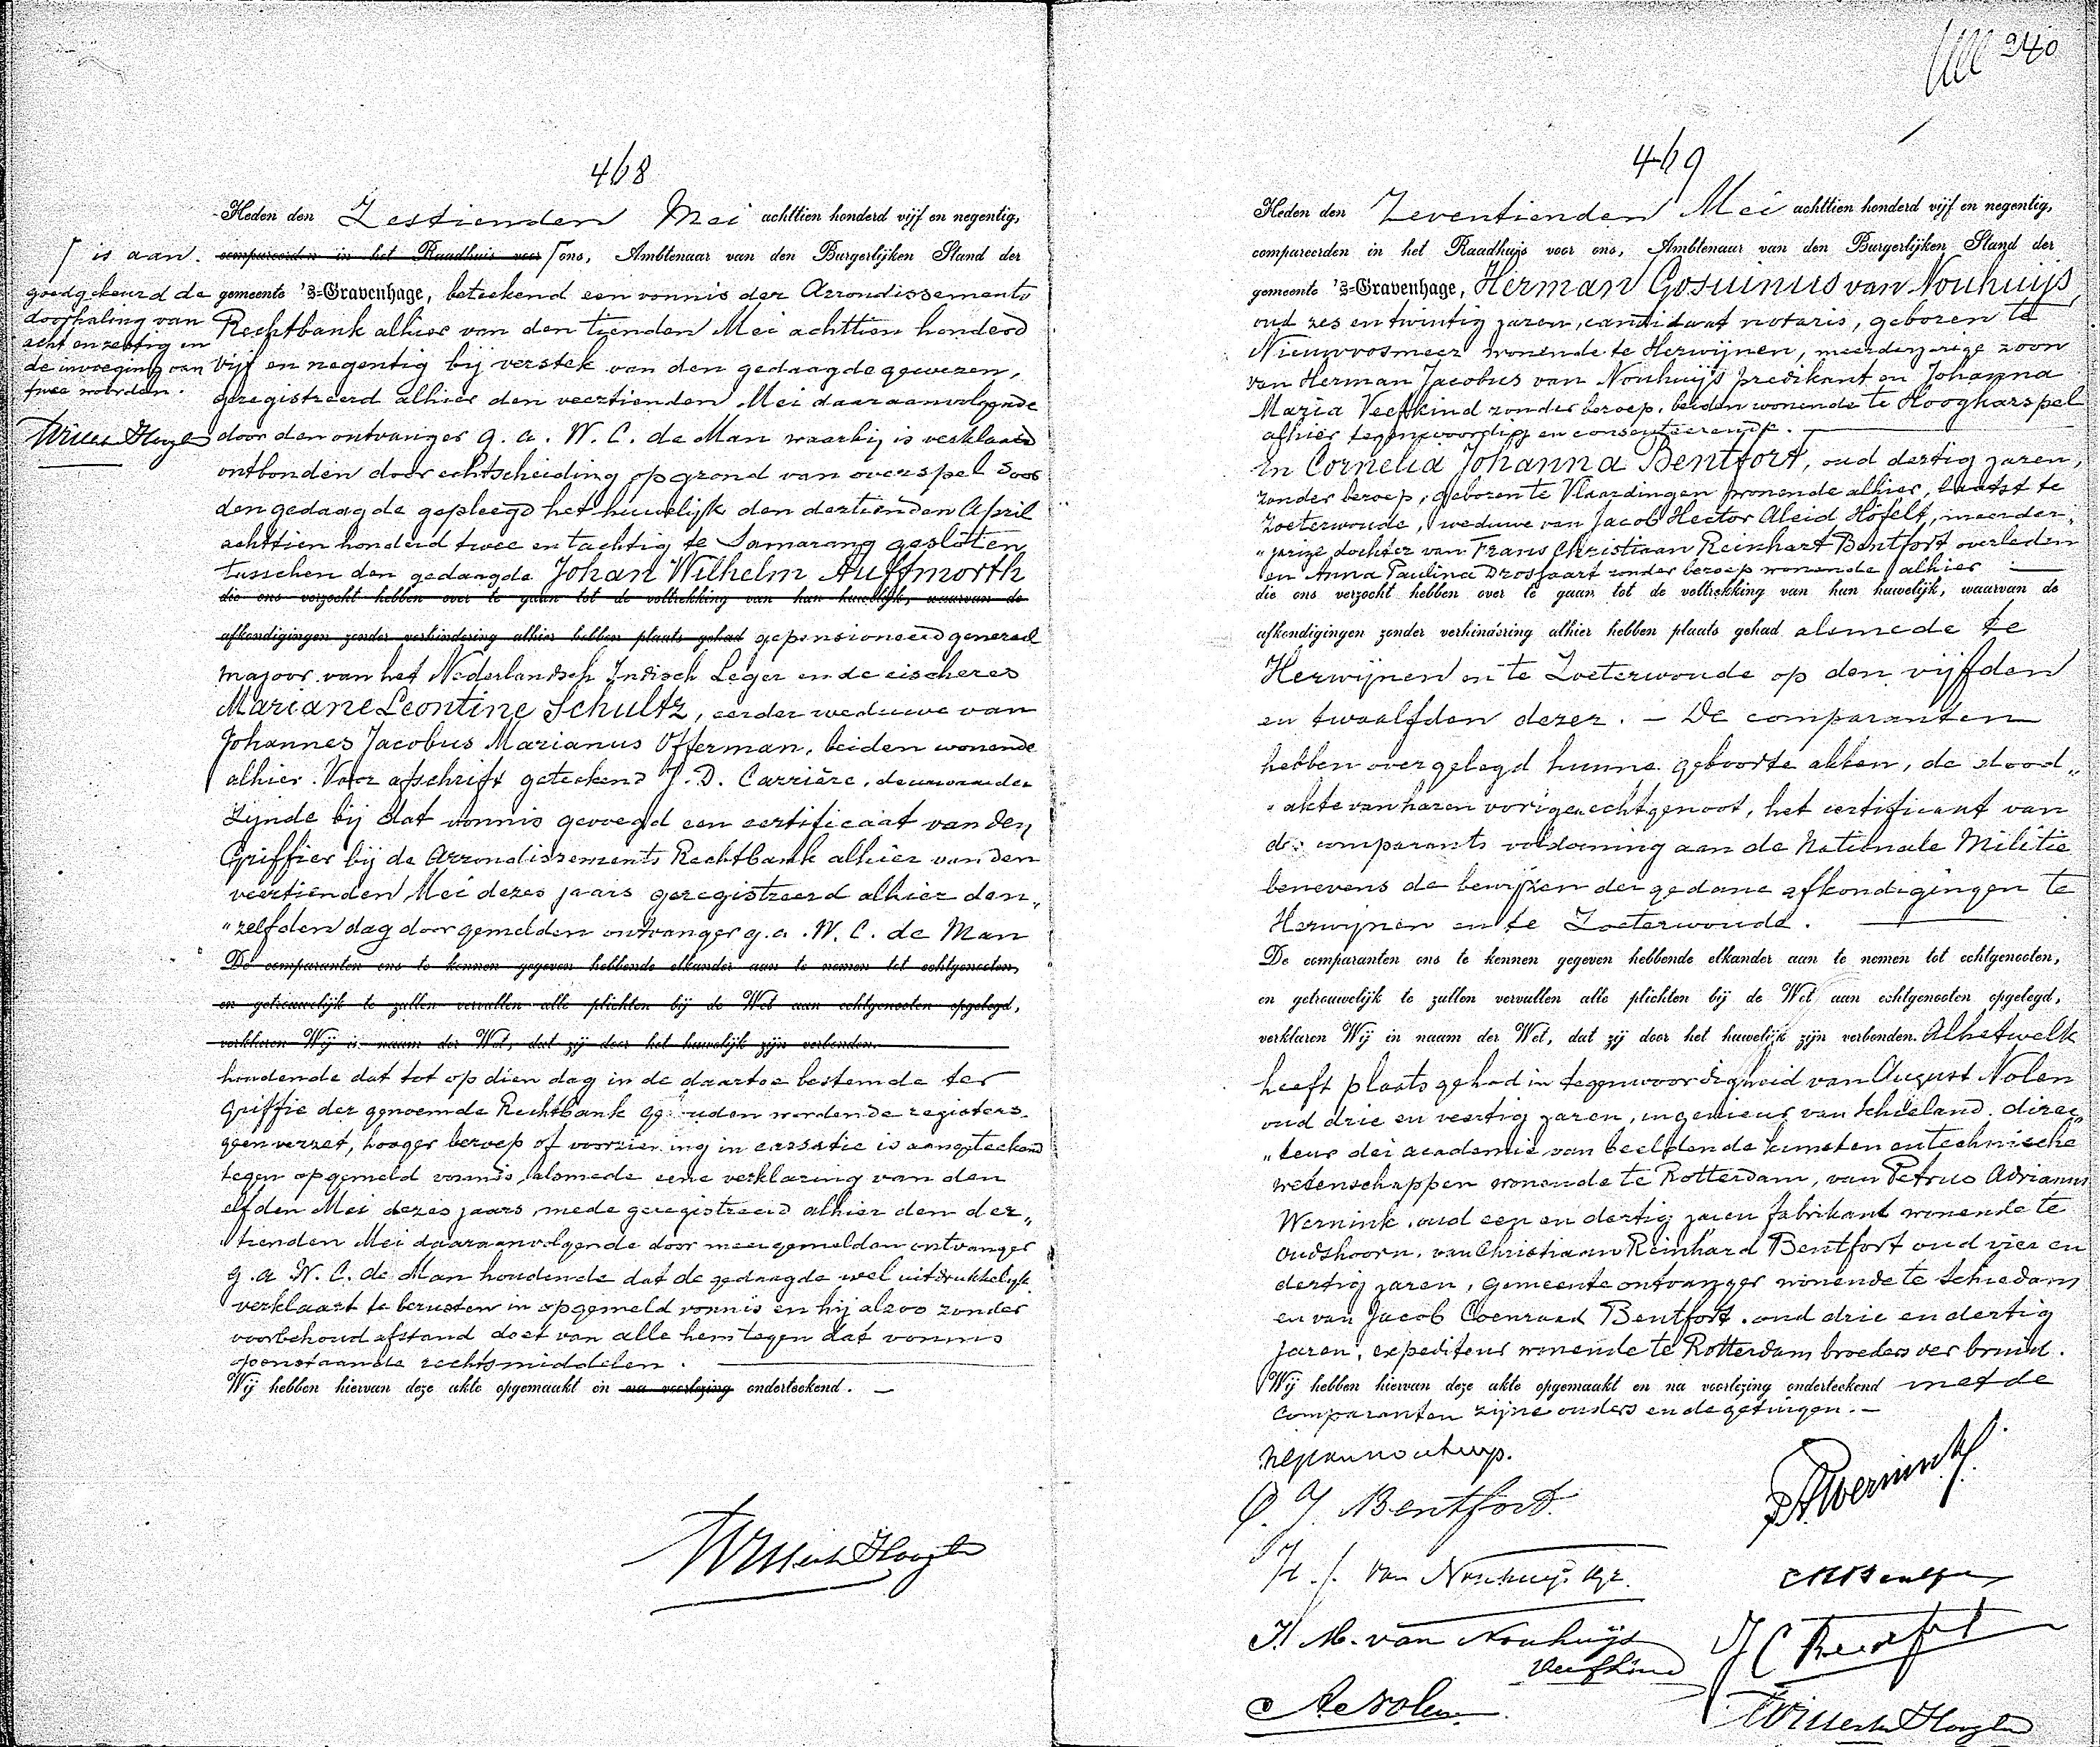 468
Heden den Zestienden Mei achttien honderd vijf en negentig,
is aan.
compareerden in het Raadhuis voor ons, Ambtenaar van den Burgerlijken Stand der
gemeente 's-Gravenhage, beteekend een vonnis der Arrondissements
Rechtbank alhier van den tienden Mei achttien honderd
vijf en negentig bij verstek van den gedaagde gewezen,
geregistreerd alhier den veertienden Mei daaraanvolgende
door den ontvanger g. a. W. C. de Man waarbij is verklaard
ontbonden door echtscheiding op grond van overspel door
den gedaagde gepleegd het huwelijk den dertienden April
achttien honderd twee en tachtig te Samarang gesloten
tusschen den gedaagde Johan Wilhelm Auffmorth
die ons verzocht hebben over te gaan tot de voltrekking van hun huwelijk, waarvan de
afkondigingen zonder verhindering alhier hebben plaats gehad gepensioneerd generaal
majoor van het Nederlandsch Indisch Leger en de eischeres
Mariane Leontine Schultz, eerder weduwe van
Johannes Jacobus Marianus Offerman, beiden wonende
alhier. Voor afschrift geteekend J. D. Carrière, deurwaarder
Zijnde bij dat vonnis gevoegd een certificaat van den
Griffier bij de Arrondissements Rechtbank alhier van den
veertienden Mei dezes jaars geregistreerd alhier den„
„zelfden dag door gemelden ontvanger g. a. W. C. de Man
De comparanten ons te kennen gegeven hebbende elkander aan te nemen tot echtgenooten,
en getrouwelijk te zullen vervullen alle plichten bij de Wet aan echtgenooten opgelegd,
verklaren Wij in naam der Wet, dat zij door het huwelijk zijn verbonden.
houdende dat tot op dien dag in de daartoe bestemde ter
Griffie der genoemde Rechtbank gehouden wordende registers
geen verzet, hooger beroep of voorziening in cassatie is aangeteekend
tegen opgemeld vonnis, alsmede eene verklaring van den
elfden Mei dezes jaars, mede geregistreerd alhier den der„
„tienden Mei daaraanvolgende door meergemelden ontvanger
g. a W. C. de Man houdende dat de gedaagde wel uitdrukkelijk
verklaart te berusten in opgemeld vonnis en hij alzoo zonder
voorbehoud afstand doet van alle hem tegen dat vonnis
openstaande rechtsmiddelen.
Wij hebben hiervan deze akte opgemaakt en na voorlezing onderteekend. —
goedgekeurd de
doorhaling van
acht en zestig en
de invoeging van
twee woorden.
240
469
Heden den Zeventienden Mei achttien honderd vijf en negentig,
compareerden in het Raadhuis voor ons, Ambtenaar van den Burgerlijken Stand der
gemeente 's-Gravenhage, Herman Gosuinus van Nouhuijs,
oud zes en twintig jaren, candidaat notaris, geboren te
Nieuwvosmeer wonende te Herwijnen, meerderjarige zoon
van Herman Jacobus van Nouhuijs predikant en Johanna
Maria Veefkind zonder beroep, beiden wonende te Hoogkarspel
alhier tegenwoordig en consenteerende. —
En Cornelia Johanna Bentfort, oud dertig jaren,
zonder beroep, geboren te Vlaardingen wonende alhier, laatst te
Zoeterwoude, weduwe van Jacob Hector Aleid Höfelt, meerder„
„jarige dochter van Frans Christiaan Reinhart Bentfort overleden
en Anna Paulina Drossaart zonder beroep wonende alhier —
die ons verzocht hebben over te gaan tot de voltrekking van hun huwelijk, waarvan de
afkondigingen zonder verhindering alhier hebben plaats gehad alsmede te
Herwijnen en te Zoeterwoude op den vijfden
en twaalfden dezer. — De comparanten
hebben overgelegd hunne geboorte akten, de dood„
„akte van haren vorigen echtgenoot, het certificaat van
des comparants voldoening aan de Nationale Militie
benevens de bewijzen der gedane afkondigingen te
Herwijnen en te Zoeterwoude. —
De comparanten ons te kennen gegeven hebbende elkander aan te nemen tot echtgenooten,
en getrouwelijk te zullen vervullen alle plichten bij de Wet aan echtgenooten opgelegd,
verklaren Wij in naam der Wet, dat zij door het huwelijk zijn verbonden. Alhetwelk
heeft plaats gehad in tegenwoordigheid van August Nolen
oud drie en veertig jaren, ingenieur van Schieland, direc„
„teur der academie van beeldende kunsten en technische
wetenschappen wonende te Rotterdam, van Petrus Adrianus
Wernink, oud een en dertig jaren fabrikant wonende te
Oudshoorn, van Christiaan Reinhard Bentfort oud vier en
dertig jaren, gemeente ontvanger wonende te Schiedam
en van Jacob Coenraad Bentfort, oud drie en dertig
jaren, expediteur wonende te Rotterdam broeders der bruid.
Wij hebben hiervan deze akte opgemaakt en na voorlezing onderteekend met de
comparanten zijne ouders en de getuigen. —
C. J. Bentfort.
PAWernink.
H. J. van Nouhuijs
J. M. van Nouhuijs
Veefkind
J C Bentfort
A. Nolen